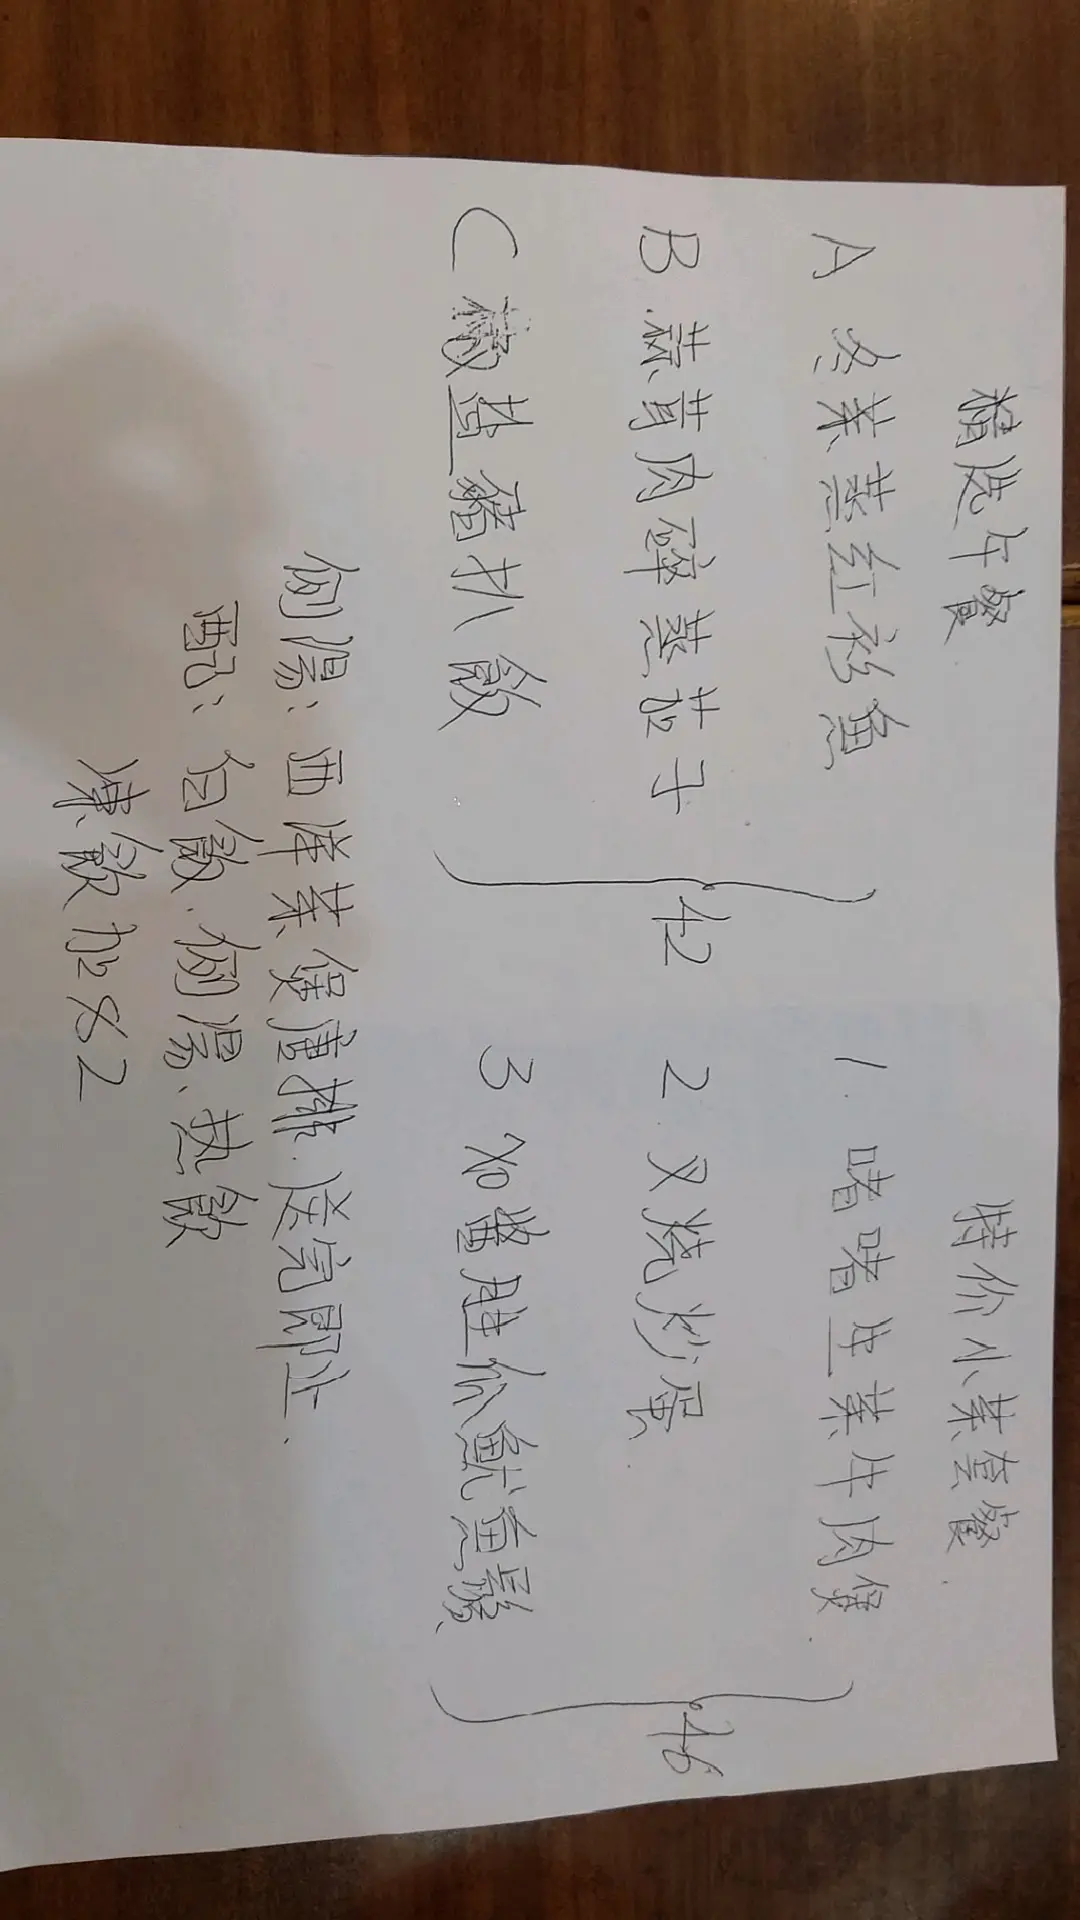 精选午餐
A 冬菜蒸红衫魚
B 蒜茸肉碎蒸茄子
C 椒盐豬扒飯
42
特价小菜套餐
1. 啫啫生菜牛肉煲
2 叉烧炒蛋
3 XO醬胜瓜魷魚鬚
46
例湯：西洋菜煲唐排.送完即止.
配：白飯.例湯、热飲
凍飲加$2